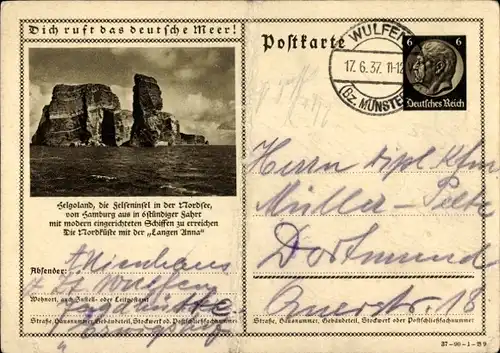 Dich ruft das deutsche Meer!
Helgoland, die Felseninsel in der Nordsee,
von Hamburg aus in 6stündiger Fahrt
mit modern eingerichteten Schiffen zu erreichen
Die Nordküste mit der „Langen Anna"
Absender:
Wulfen
Wohnort, auch Zustell- oder Leitpostamt
Straße, Hausnummer, Gebäudeteil, Stockwerk od. Postschließfachnummer
Postkarte
WULFEN
17.6.37. 11-12
(Bz. MÜNSTER
6 6
Deutsches Reich
Herrn Dipl Kfm
Müller-
Dortmund
18
Straße, Hausnummer, Gebäudeteil, Stockwerk oder Postschließfachnummer
37-90-1-B9